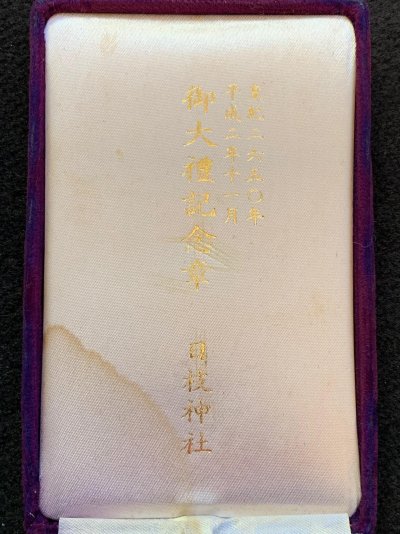 皇紀二六五〇年
平成二年十一月
御大禮記念章
日枝神社